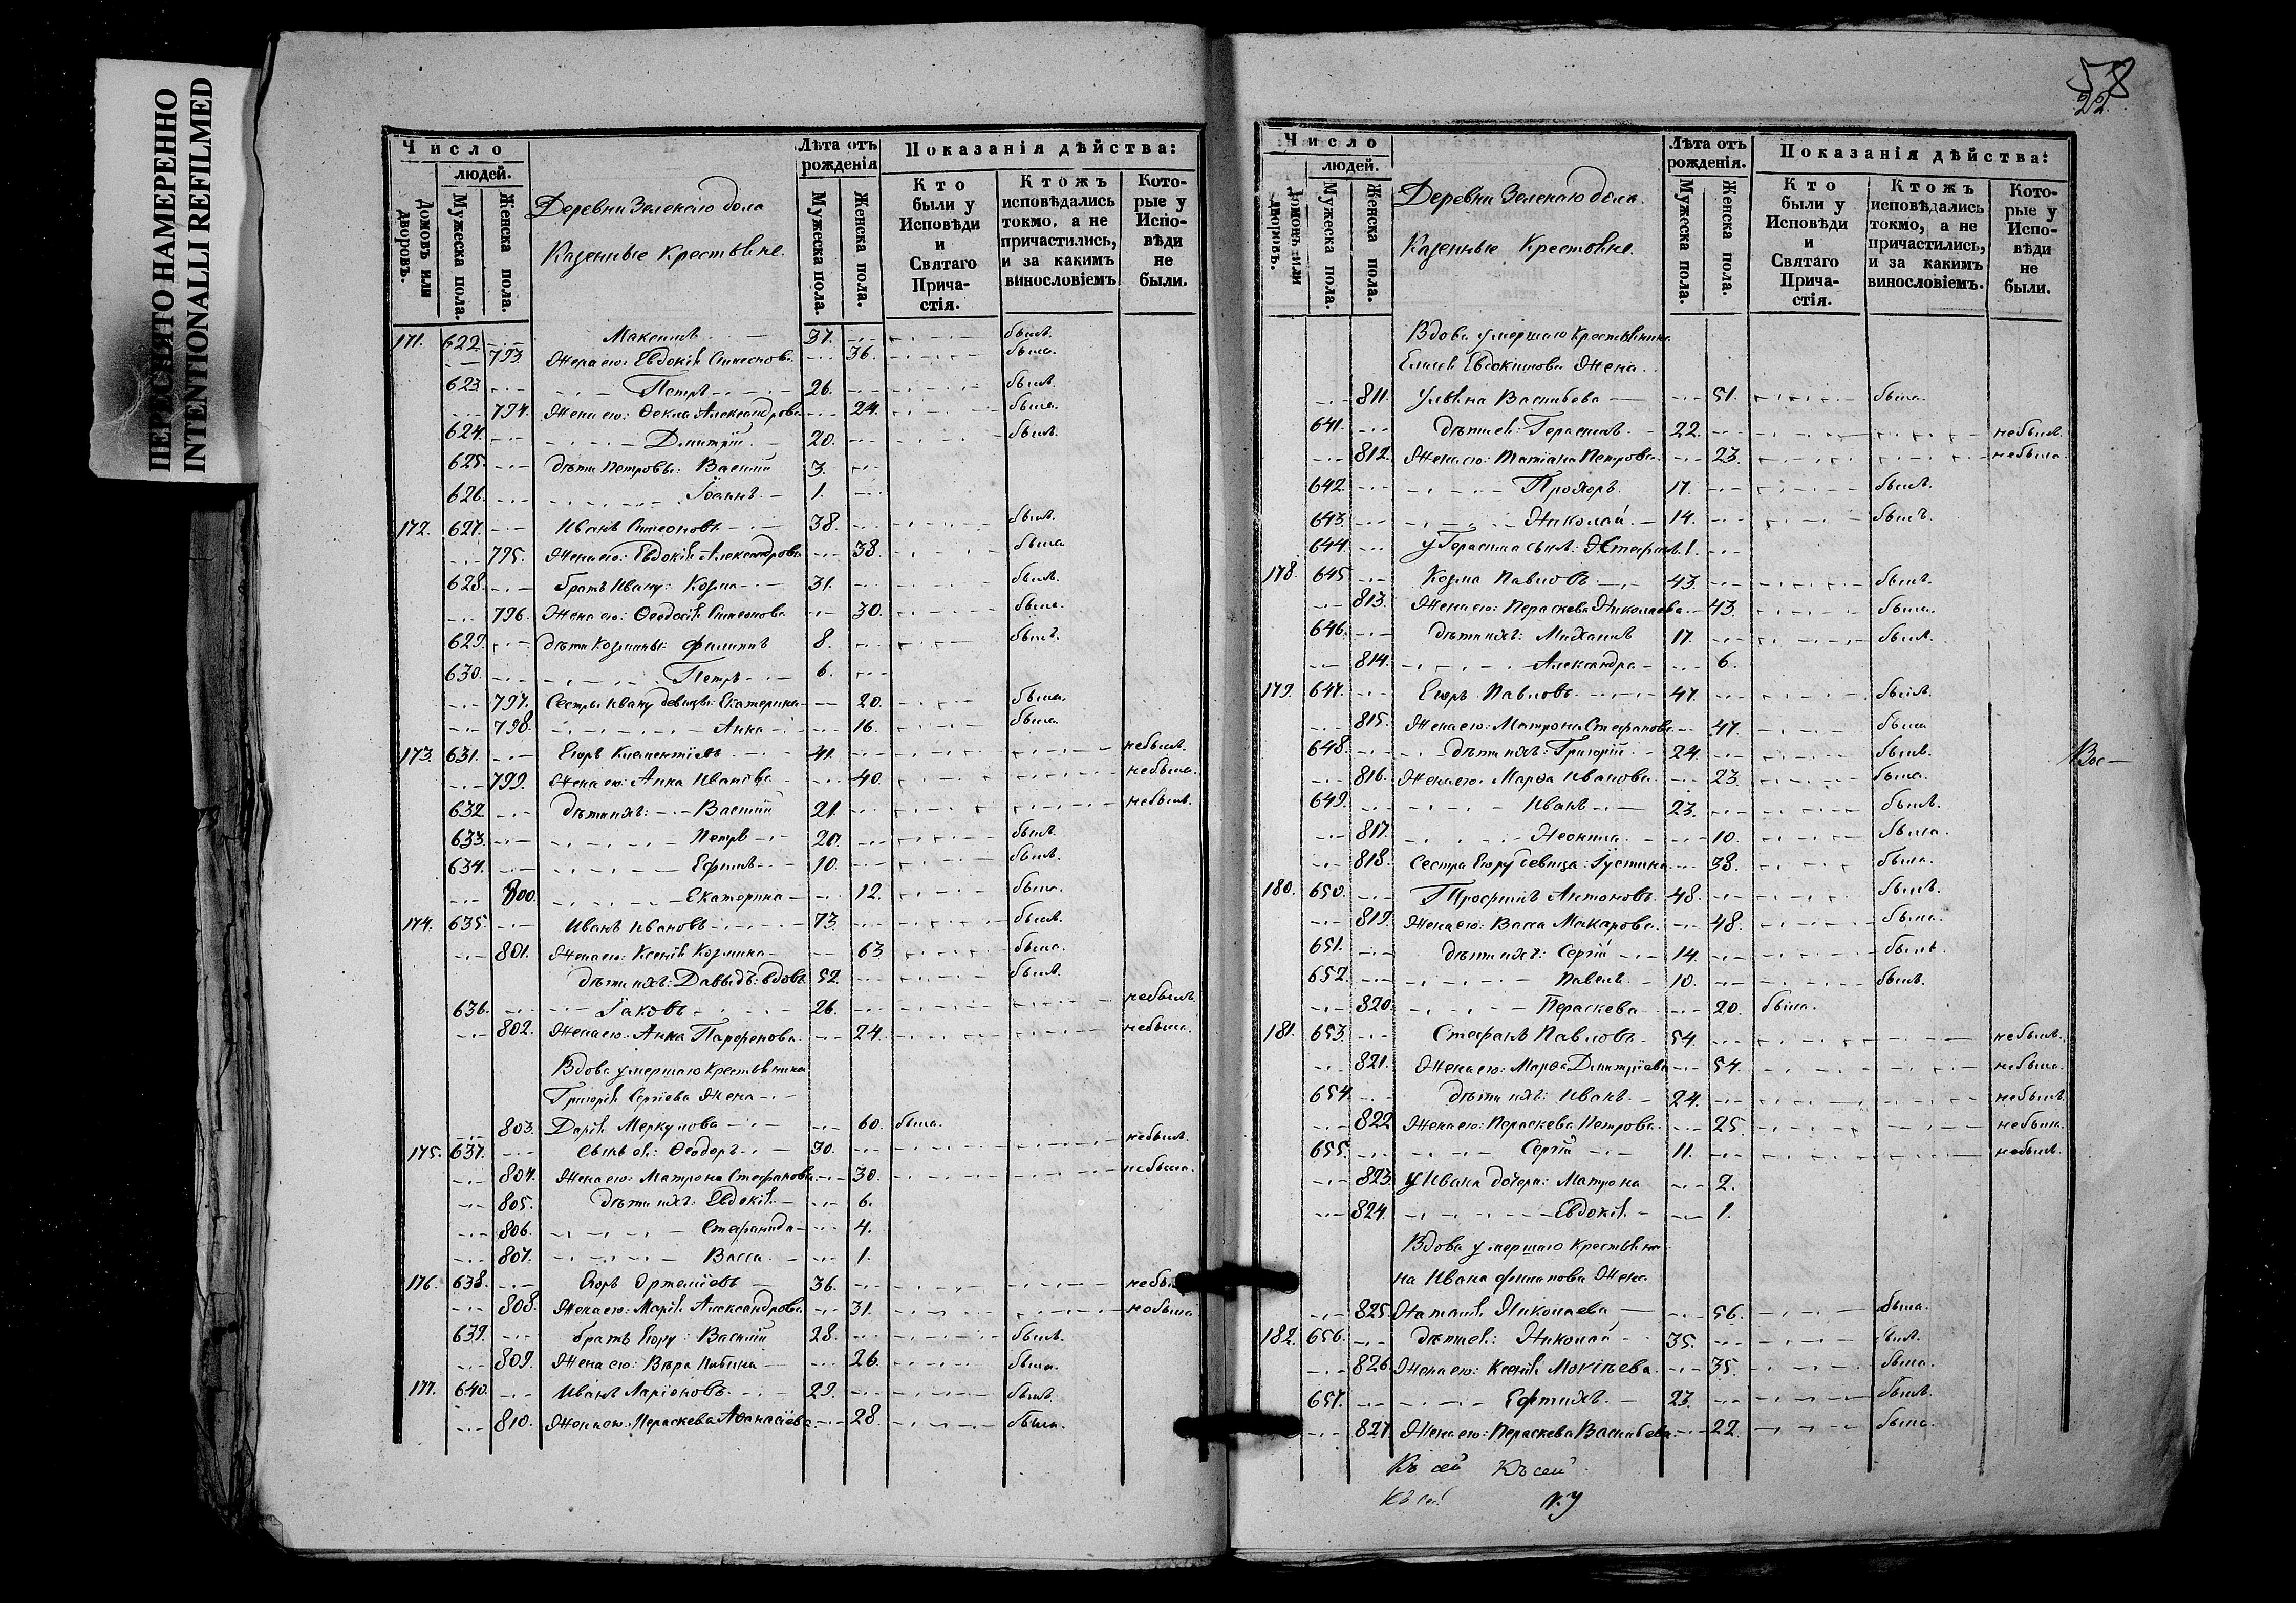 ПЕРЕСНЯТО НАМЕРЕННО
INTENTIONALLI REFILMED
Число
людей.
Домовъ или дворовъ.
Мужеска пола.
Женска пола.
Деревни Зеленаго дола
Казенные Крестьяне.
Лѣта отъ рожденія
Мужеска пола.
Женска пола.
Показанія дѣйства:
Кто были у Исповѣди и Святаго Причастія.
Ктожъ исповѣдались токмо, а не причастились, и за какимъ винословіемъ
Которые у Исповѣди не были.
171. 622. Максимъ 37. былъ.
793. Жена его: Евдокія Симеонова 36. была.
623. Петръ 26. былъ.
794. Жена его: Ѳекла Александрова 24. была.
624. Дмитрій 20. былъ.
625. дѣти Петровы: Василій 3.
626. Іоаннъ 1.
172. 627. Иванъ Симеоновъ 38. былъ.
795. Жена его: Евдокія Александрова 38. была
628. братъ Ивану: Козма 31. былъ.
796. Жена его: Ѳеодосія Симеонова 30. была.
629. дѣти Козмины: Филиппъ 8. былъ
630. Петръ 6.
797. Сестры Ивану девицы: Екатерина 20. была.
798. Анна 16. была
173. 631. Егоръ Климентіевъ 41. небылъ.
799. Жена его: Анна Иванова 40. небыла.
632. дѣти ихъ: Василій 21. небылъ.
633. Петръ 20. былъ.
634. Ефимъ 10. былъ.
800. Екатерина 12. была.
174. 635. Иванъ Ивановъ 73. былъ.
801. Жена его: Ксенія Козмина 63. была.
дѣти ихъ: Давыдъ вдовъ 52. былъ.
636. Іаковъ 26. небылъ
802. Жена его: Анна Парфенова 24. небыла.
Вдова умершаго крестьянина
Григорія Сергіева Жена
803. Дарія Меркулова 60. была.
175. 637. Сынъ ея: Ѳеодоръ 30. небылъ.
804. Жена его: Матрона Стефанова 30. небыла.
805. дѣти ихъ: Евдокія 6.
806. Стефанида 4.
807. Васса 1.
176. 638. Егоръ Ортеміевъ 36. небы
808. Жена его: Марія Александрова 31. небыла
639. братъ Егору: Василій 28. былъ.
809. Жена его: Вѣра 26. была.
177. 640. Иванъ Ларіоновъ 29. былъ.
810. Жена его: Пераскева Аѳанасіева 28. была.
58
22.
Число
людей.
Домовъ или дворовъ.
Мужеска пола.
Женска пола.
Деревни Зеленаго дола.
Казенные Крестьяне.
Лѣта отъ рожденія.
Мужеска пола.
Женска пола.
Показанія дѣйства:
Кто были у Исповѣди и Святаго Причастія.
Ктожъ исповѣдались токмо, а не причастились, и за какимъ винословіемъ.
Которые у Исповѣди не были.
Вдова умершаго крестьянина
Евдокимова Жена
811. Ульяна Васильева 51. была.
641. дѣти ея: Герасимъ 22. небылъ.
812. Жена его: Татіана Петрова 23. небыла.
642. Прохоръ 17. былъ.
643. Николай 14. былъ.
644. у Герасима сынъ: 1.
178. 645. Козма Павловъ 43. былъ.
813. Жена его: Пераскева Николаева 43. была.
646. дѣти ихъ: Михаилъ 17. былъ.
814. Александра 6.
179. 647. Егоръ Павловъ 47. былъ.
815. Жена его: Матрона Стефанова 47. была
648. дѣти ихъ: Григорій 24. былъ.
816. Жена его: Марѳа Иванова 23. была.
649. Иванъ 23. былъ.
817. Неонила 10. была.
818. Сестра Егору девица: Іустина 38. была.
180. 650. Трофимъ Антоновъ 48. былъ.
819. Жена его: Васса Макарова 48. была.
651. дѣти ихъ: Сергій 14. былъ
652. Павелъ 10. былъ.
820. Пераскева 20. была.
181. 653. Стефанъ Павловъ 54. небылъ.
821. Жена его: Марѳа Дмитріева 54. небыла.
654. дѣти ихъ: Иванъ 24. небылъ
822. Жена его: Пераскева Петрова 25. небыла.
655. Сергій 11. небылъ.
823. у Ивана дочери: Матрона 2.
824. Евдокія 1.
Вдова умершаго крестьяни
на Ивана Филипова Жена
825. Наталія Николаева 56. была.
182. 656. дѣти ея: Николай 35. былъ.
826. Жена его: Ксенія Мокіѣева 35. была.
657. Ефтихъ 23. былъ.
827. Жена его: Пераскева Васильева 22. была.
Къ сей Къ сей